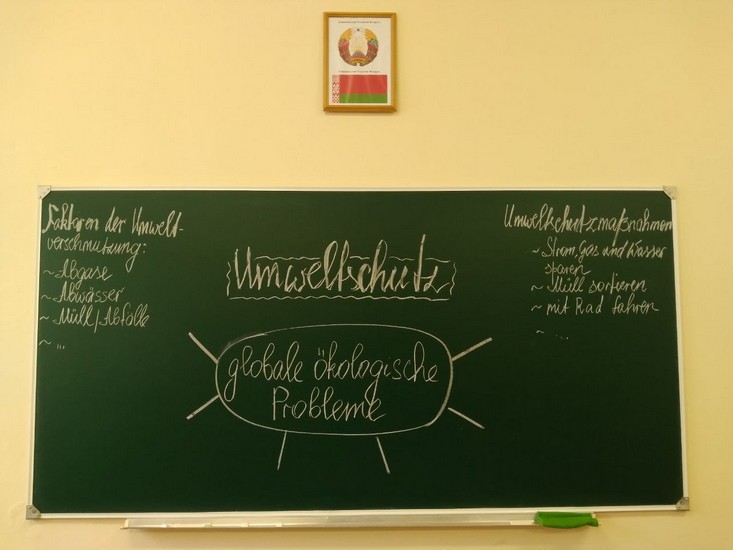 Faktoren der Umwelt-
verschmutzung:
~ Abgase
~ Abwässer
~ Müll/Abfälle
~ ...
Umweltschutz
globale ökologische
Probleme
Umweltschutzmaßnahmen
~ Strom, Gas und Wasser
sparen
~ Müll sortieren
~ mit Rad fahren
~ ...